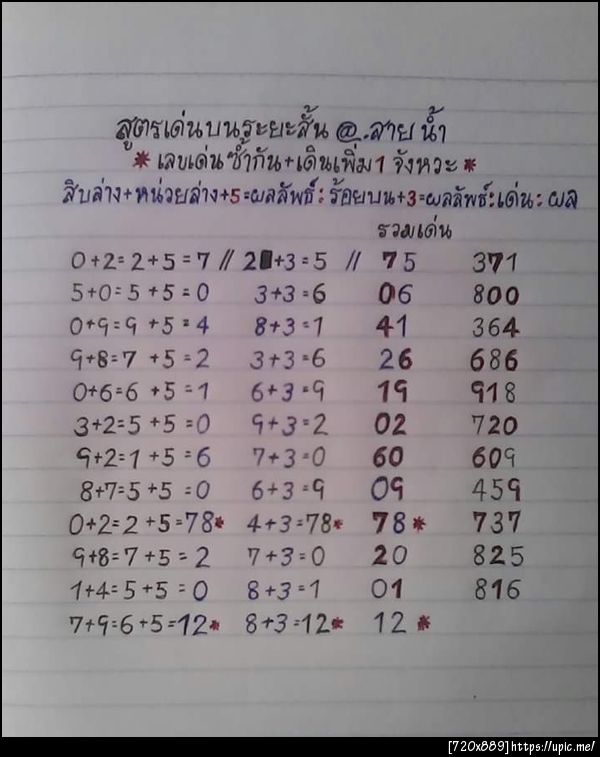 สูตรเด่นบนระยะสั้น @.สายน้ำ
* เลขเด่นซ้ำกัน+เดินเพิ่ม1จังหวะ *
สิบล่าง+หน่วยล่าง+5=ผลลัพธ์: ร้อยบน+3=ผลลัพธ์:เด่น: ผล
รวมเด่น
0+2=2+5=7 // 2 +3=5 // 75 371
5+0=5+5=0 3+3=6 06 800
0+9=9+5=4 8+3=1 41 364
9+8=7+5=2 3+3=6 26 686
0+6=6+5=1 6+3=9 19 918
3+2=5+5=0 9+3=2 02 720
9+2=1+5=6 7+3=0 60 609
8+7=5+5=0 6+3=9 09 459
0+2=2+5=78* 4+3=78* 78* 737
9+8=7+5=2 7+3=0 20 825
1+4=5+5=0 8+3=1 01 816
7+9=6+5=12* 8+3=12* 12 *
[720x889]https://upic.me/